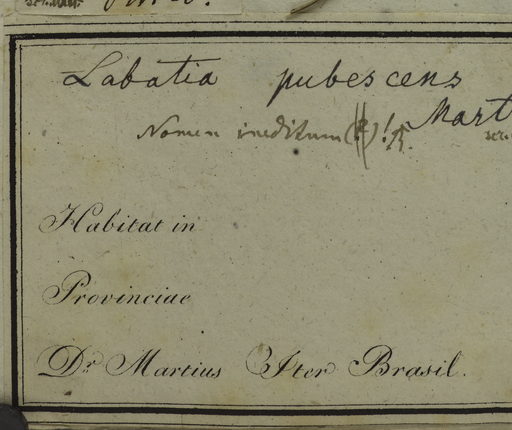 scr. Mart.
Labatia pubescens
Mart
Nomen ineditum (?)!
scr.
Habitat in
Provinciae
Dr. Martius Iter Brasil.